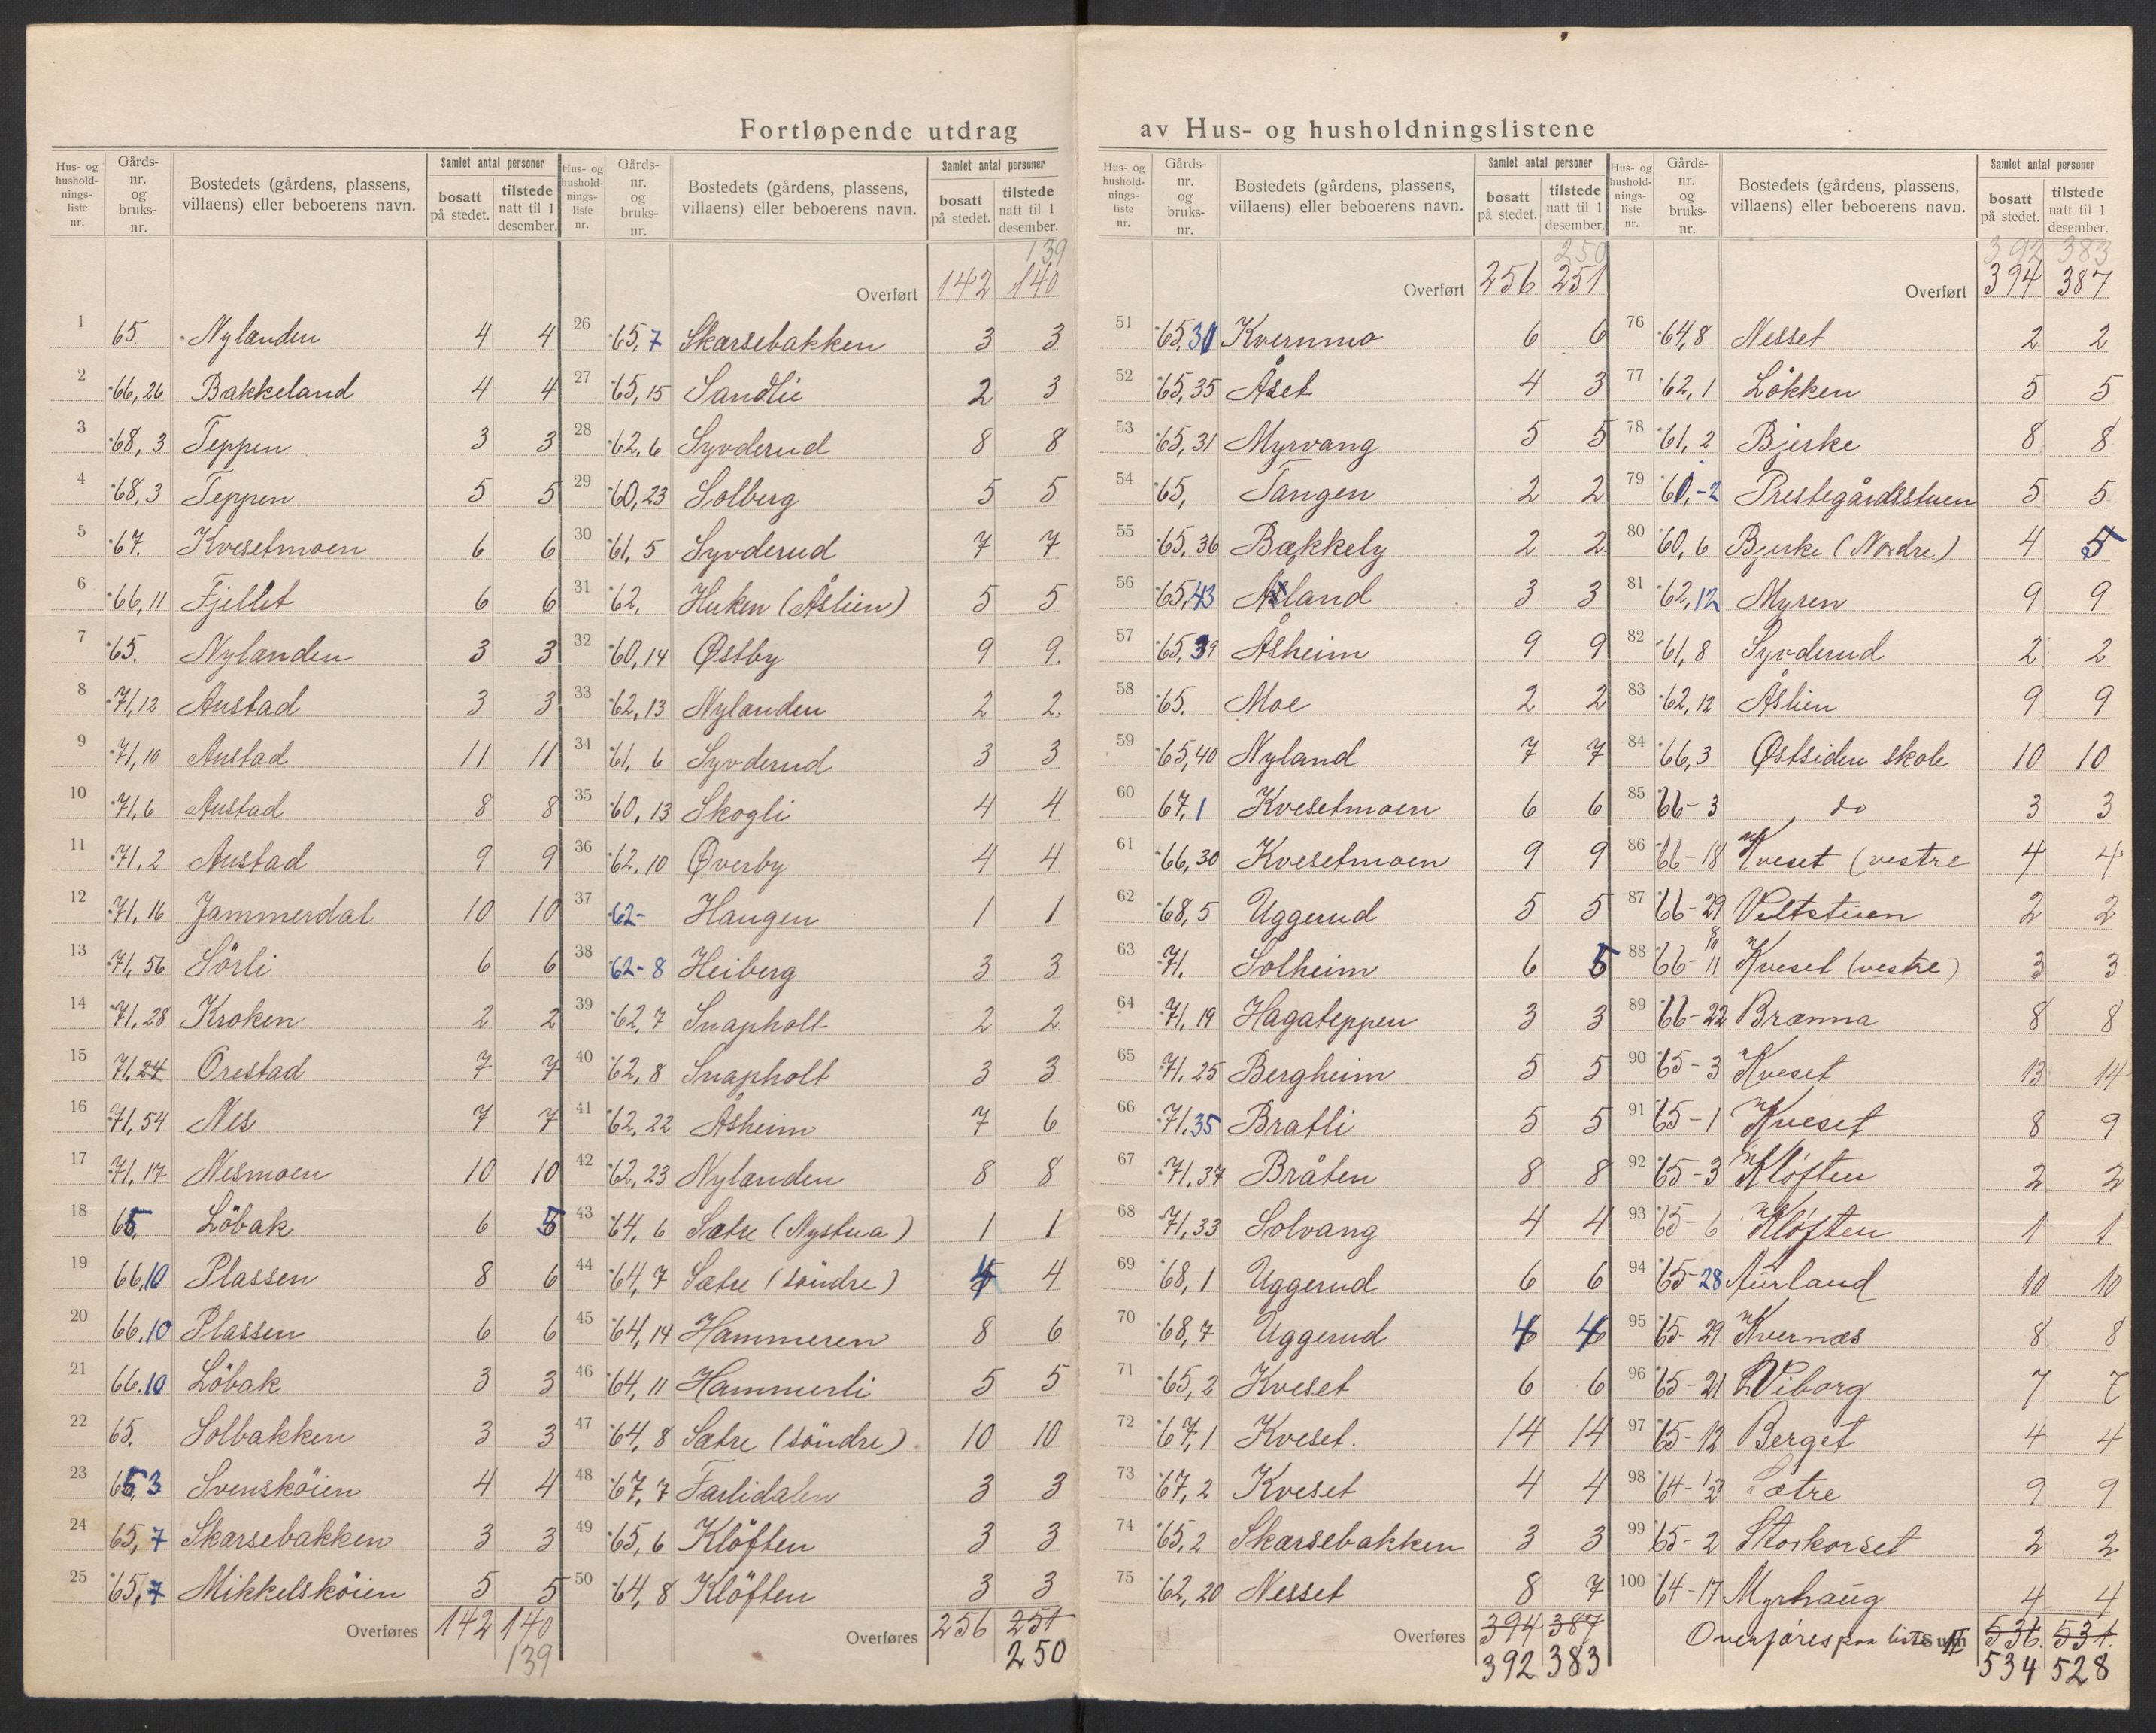 Fortløpende utdrag av Hus- og husholdningslistene
Hus- og hushold- nings- liste nr. Gårds- nr. og bruks- nr. Bostedets (gårdens, plassens, villaens) eller beboerens navn. Samlet antal personer bosatt på stedet. tilstede natt til 1 desember.
1 65. Nylanden 4 4
2 66,26 Bakkeland 4 4
3 68,3 Teppen 3 3
4 68,3 Teppen 5 5
5 67. Kvesetmoen 6 6
6 66,11 Fjellet 6 6
7 65. Nylanden 3 3
8 71,12 Austad 3 3
9 71,10 Austad 11 11
10 71,6 Austad 8 8
11 71,2 Austad 9 9
12 71,16 Jammerdal 10 10
13 71,56 Sörli 6 6
14 71,28 Kroken 2 2
15 71,24 Orestad 7 7
16 71,54 Nes 7 7
17 71,17 Nesmoen 10 10
18 65, Löbak 6 5
19 66,10 Plassen 8 6
20 66,10 Plassen 6 6
21 66.10 Löbak 3 3
22 65. Solbakken 3 3
23 65,3 Svensköien 4 4
24 65,7 Skarsebakken 3 3
25 65,7 Mikkelsköien 5 5
Overføres 142 140
139
Hus- og hushold- nings- liste nr. Gårds- nr. og bruks- nr. Bostedets (gårdens, plassens, villaens) eller beboerens navn. Samlet antal personer bosatt på stedet. tilstede natt til 1 desember.
139
Overført 142 140
26 65,7 Skarsebakken 3 3
27 65,15 Sandlie 2 3
28 62,6 Syvderud 8 8
29 60,23 Solberg 5 5
30 61,5 Syvderud 7 7
31 62, Huken (Åslien) 5 5
32 60,14 Østby 9 9.
33 62,13 Nylanden 2 2.
34 61,6 Syvderud 3 3
35 60,13 Skogli 4 4
36 62,10 Øverby 4 4
37 62- Haugen 1 1
38 62-8 Heiberg 3 3
39 62,7 Snapholt 2 2
40 62,8 Snapholt 3 3
41 62,22 Åsheim 7 6
42 62,23 Nylanden 8 8
43 64,6 Sætre (Nystua) 1 1
44 64,7 Sætre (söndre) 4 4
45 64,14 Hammeren 8 6
46 64,11 Hammerli 5 5
47 64,8 Sætre (söndre) 10 10
48 67,7 Farlidalen 3 3
49 65,6 Klöften 3 3
50 64,8 Klöften 3 3
Overføres 256 251
250
Hus- og hushold- nings- liste nr. Gårds- nr. og bruks- nr. Bostedets (gårdens, plassens, villaens) eller beboerens navn. Samlet antal personer bosatt på stedet. tilstede natt til 1 desember.
250
Overført 256 251
51 65,30 Kvernmo 6 6
52 65,35 Åset 4 3
53 65,31 Myrvang 5 5
54 65, Tangen 2 2
55 65,36 Bækkely 2 2
56 65,43 Åsland 3 3
57 65,39 Åsheim 9 9
58 65. Moe 2 2
59 65,40 Nyland 7 7
60 67,1 Kvesetmoen 6 6
61 66,30 Kvesetmoen 9 9
62 68,5 Uggerud 5 5
63 71. Solheim 6 5
64 71,19 Hagateppen 3 3
65 71.25 Bergheim 5 5
66 71.35 Bratli 5 5
67 71,37 Bråten 8 8
68 71,33 Solvang 4 4
69 68,1 Uggerud 6 6
70 68,7 Uggerud 4 4
71 65,2 Kveset 6 6
72 67,1 Kveset. 14 14
73 67,2 Kveset 4 4
74 65,2 Skarsebakken 3 3
75 62,20 Nesset 8 7
Overføres 394 387
392 383
Hus- og hushold- nings- liste nr. Gårds- nr. og bruks- nr. Bostedets (gårdens, plassens, villaens) eller beboerens navn. Samlet antal personer bosatt på stedet. tilstede natt til 1 desember.
392 383
Overført 394 387
76 64,8 Nesset 2 2
77 62,1 Lökken 5 5
78 61,2 Bjerke 8 8
79 61,-2 Prestegårdsstuen 5 5
80 60,6 Bjerke (Nordre) 4 5
81 62,12 Myren 9 9
82 61,8 Syvderud 2 2
83 62,12 Åslien 9 9
84 66,3 Østsiden skole 10 10
85 66-3 do 3 3
86 66-18 Kveset (vestre 4 4
87 66-29 Veltstuen 2 2
88 66-11 Kveset (vestre) 3 3
89 66-22 Brænna 8 8
90 65-3 Kveset 13 14
91 65-1 Kveset 8 9
92 65-3 Kløften 2 2
93 65-6 Kløften 1 1
94 65-28 Aurland 10 10
95 65-29 Kvernæs 8 8
96 65-21 Viborg 7 7
97 65-12 Berget 4 4
98 64- Sætre 9 9
99 65-2 Storkorset 2 2
100 64-17 Myrhaug 4 4
Overføres paa liste II Sum 536. 531.
534 528